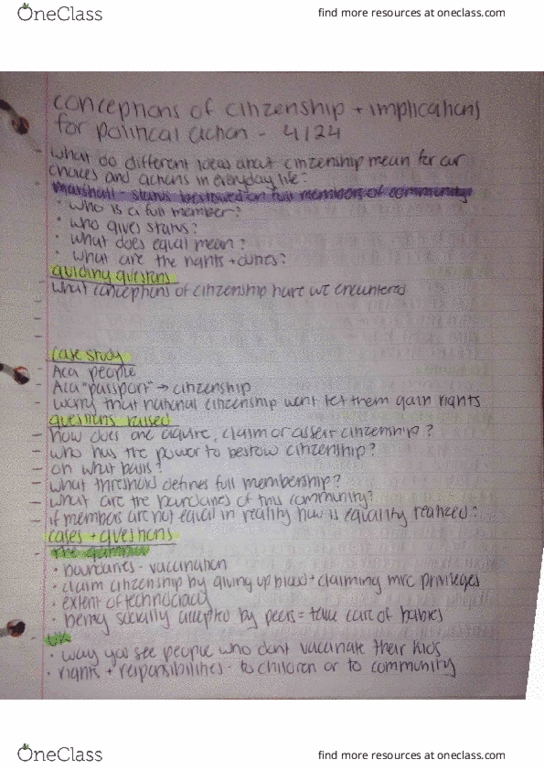 OneClass
find more resources at oneclass.com
conceptions of citizenship + implications
for political action - 4/24
what do different ideas about citizenship mean for our
choices and actions in everyday life?
marshall - status bestowed on full members of community
• who is a full member?
• who gives status?
• what does equal mean?
• what are the rights + duties?
guiding questions
what conceptions of citizenship have we encountered
case study
Aca people
Aca "passport" → citizenship
worry that national citizenship wont let them gain rights
questions raised
- how does one aquire, claim or assert citizenship?
- who has the power to bestow citizenship?
- on what basis?
- what threshold defines full membership?
- what are the boundaries of this community?
- if members are not equal in reality how is equality realized?
cases + questions
the gambia
• boundaries - vaccination
• claim citizenship by giving up blood + claiming mrc privileges
• extent of technocracy
• being socially accepted by peers = take care of babies
UK
• way you see people who dont vaccinate their kids
• rights + responsibilities - to children or to community
OneClass
find more resources at oneclass.com